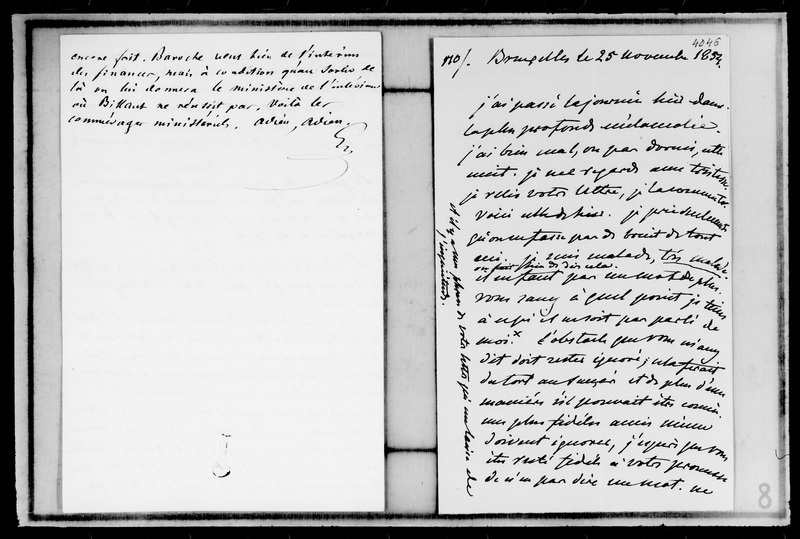 encore fait. Baroche veut bien de l'intérim
des finances, mais à condition qu'au sortir de
là on lui donnera le ministère de l'intérieur
où Billaut ne réussit pas. Voilà les
commérages ministériels. Adieu, Adieu.
G.
4046
110/. Bruxelles le 25 novembre 1854.
j'ai passé la journée hier dans
la plus profonde mélancolie.
j'ai bien mal, ou pas dormi, cette
nuit. je me regarde avec tristesse.
je relis votre lettre, je la commente.
Voici celle de hier. je
qu'on ne fasse pas de bruit de tout
ceci. je suis malade, très malade
on peut bien dire cela.
il ne faut pas un mot de plus.
vous savez à quel point je tiens
à ce qu'il ne soit pas parlé de
moi. x L'obstacle que vous m'avez
dit doit rester ignoré; cela ferait
du tort au et de plus d'une
manière s'il pouvait être connu.
mes plus fidèles amis même
doivent ignorer, j'espère que vous
êtes resté fidèle à votre promesse
de n'en pas dire un mot. ne
x il y a une phrase de votre lettre qui me laisse de
l'inquiétude.
8